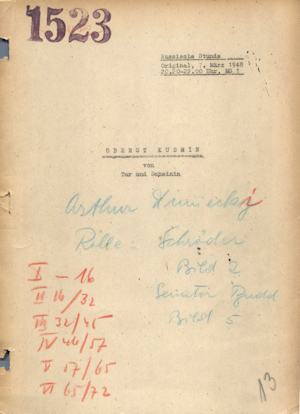 1523
Russische Stunde
Original, 7. März 1948
20.20-22.00 Uhr, MG 1
OBERST KUSMIN
von
Tur und Scheinin
Arthur
Rolle: Schröder
Bild 2
Senator Budd
Bild 5
I - 16
II 16/32
III 32/45
IV 46/57
V 57/65
VI 65/72
13